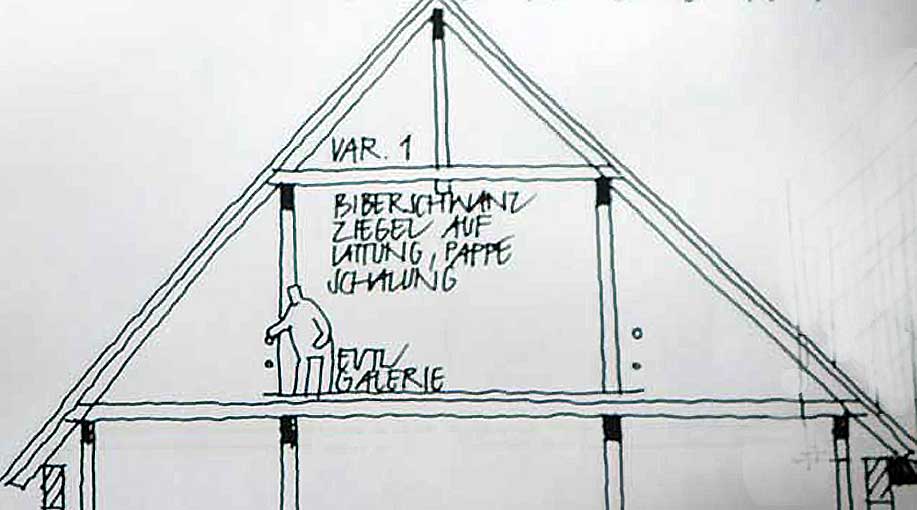 VAR. 1
BIBERSCHWANZ
ZIEGEL AUF
LATTUNG, PAPPE
SCHALUNG
EVTL
GALERIE